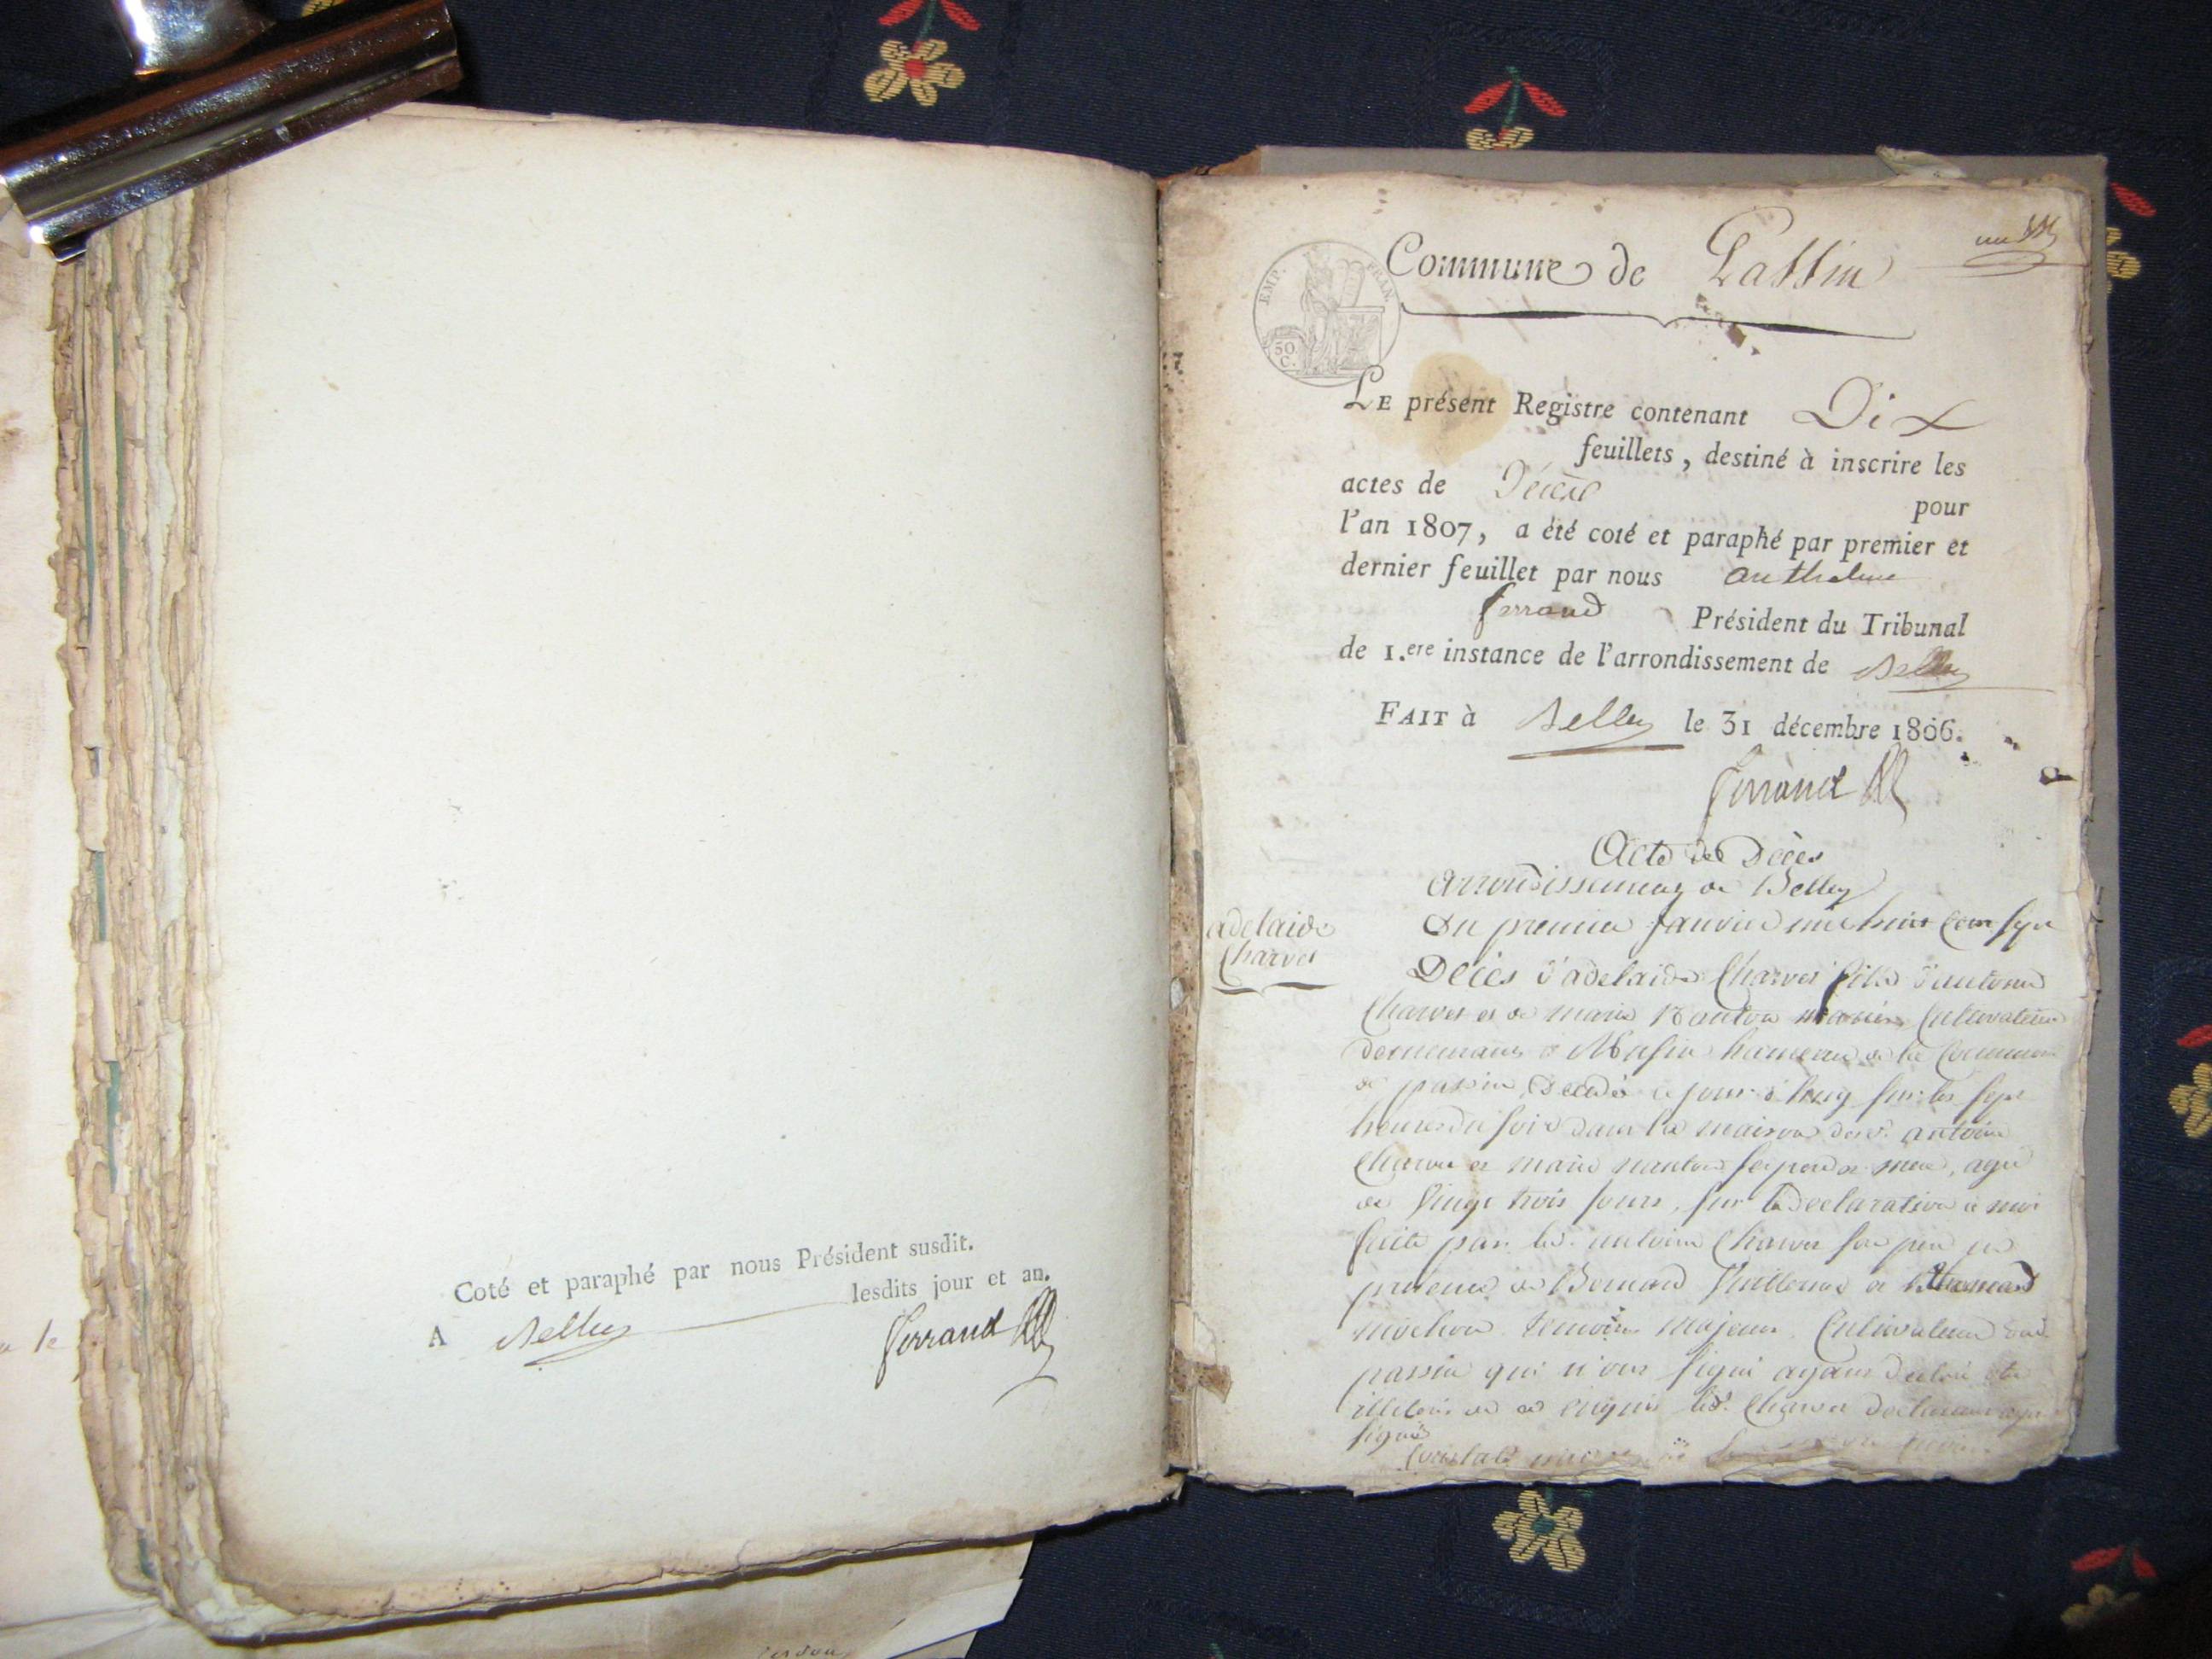 Coté et paraphé par nous Président susdit.
A Belley lesdits jour et an.
Ferrand
Commune de Passin
EMP. FRAN.
50
C.
LE présent Registre contenant Dix
feuillets, destiné à inscrire les
actes de Décès pour
l'an 1807, a été coté et paraphé par premier et
dernier feuillet par nous anthelme
ferrand Président du Tribunal
de 1.ere instance de l'arrondissement de Belley
FAIT à Belley le 31 décembre 1806.
Ferrand
Acte de Décès
arrondissement de Belley
adelaide
Charvet
Du premier janvier mil huit cent sept
Décès d'adelaide Charvet fille d'antoine
Charvet et de marie
hameau de la Commune
de passin décédé ce jour d'huy sur les sept
heures du soir dans la maison antoine
Charvet et marie ses père et mere, agée
de vingt trois jours, sur la déclaration à moi
faite par antoine Charvet son père en
présence de Bernard et
temoins majeurs Cultivateurs
passin qui n'ont signé ayant déclaré etre
de ce enquis Charvet
signé
Constaté